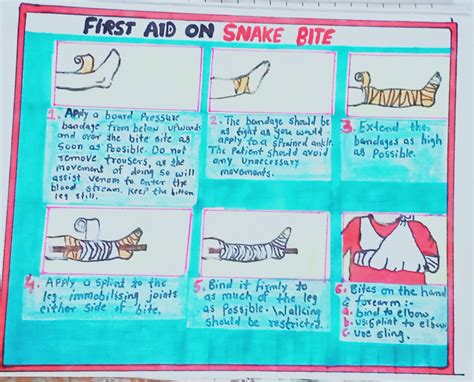 FIRST AID ON SNAKE BITE
1. Apply a board Pressure
bandage from below upwards
and over the bite site as
soon as Possible. Do not
remove trousers, as the
movement of doing so will
assist venom to enter the
blood stream. Keep the bitten
leg still.
2. The bandage should be
as tight as you would
apply to a sprained ankle.
The patient should avoid
any unnecessary
movements.
3. Extend the
bandages as high
as Possible.
4. Apply a splint to the
leg, immobilising joints
either side of bite.
5. Bind it firmly to
as much of the leg
as Possible. Walking
should be restricted.
6. Bites on the hand
& forearm :-
a. bind to elbow,
b. use splint to elbow,
c. use sling.